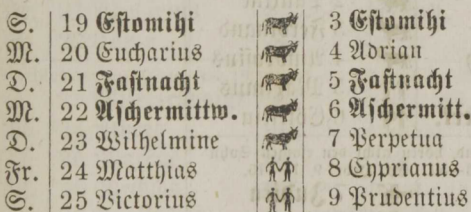 S. 19 Estomihi 3 Estomihi
M. 20 Eucharius 4 Adrian
D. 21 Fastnacht 5 Fastnacht
M. 22 Aschermittw. 6 Aschermitt.
D. 23 Wilhelmine 7 Perpetua
Fr. 24 Matthias 8 Cyprianus
S. 25 Victorius 9 Prudentius